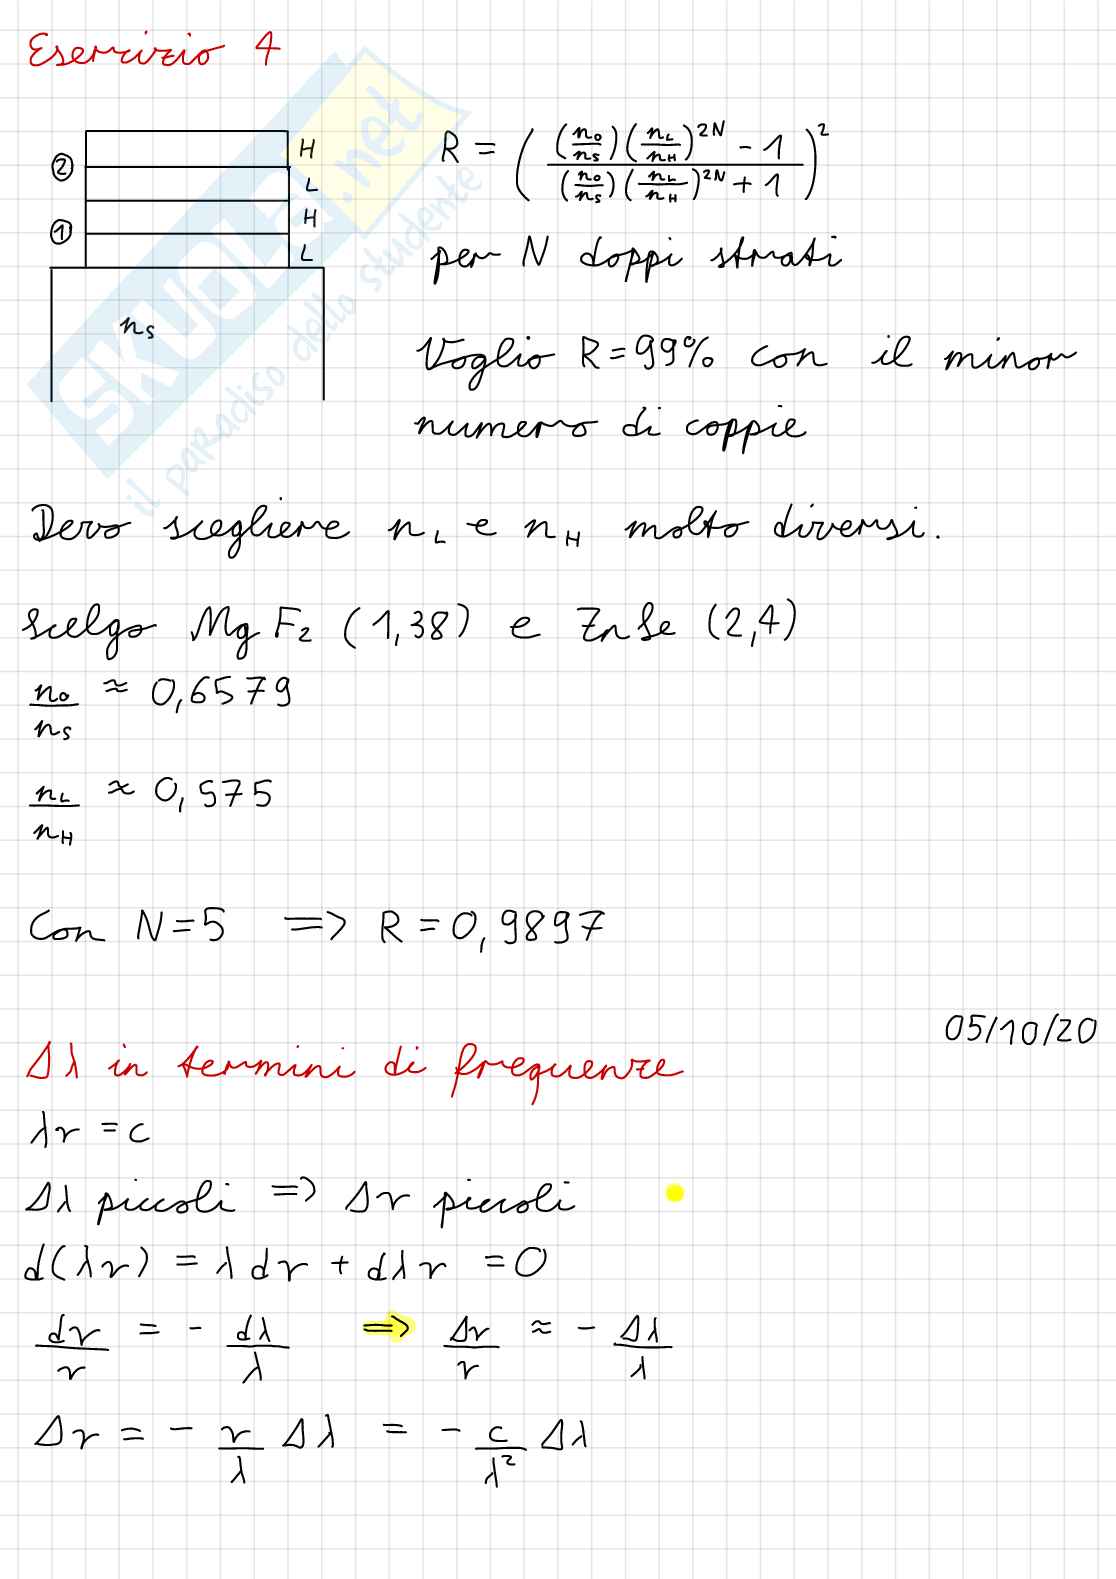 Esercizio 4
② H
L
① H
L
n_s
R = ( ( (n_0/n_s) (n_L/n_H)^2N - 1 ) / ( (n_0/n_s) (n_L/n_H)^2N + 1 ) )^2
per N doppi strati
Voglio R = 99% con il minor
numero di coppie
Devo scegliere n_L e n_H molto diversi.
Scelgo MgF_2 (1,38) e ZnSe (2,4)
n_0/n_s ≈ 0,6579
n_L/n_H ≈ 0,575
Con N = 5 => R = 0,9897
05/10/20
Δλ in termini di frequenze
λν = c
Δλ piccoli => Δν piccoli
d(λν) = λ dν + dλ ν = 0
dν/ν = - dλ/λ => Δν/ν ≈ - Δλ/λ
Δν = - ν/λ Δλ = - c/λ² Δλ
SKUOLA.net
il paradiso dello studente